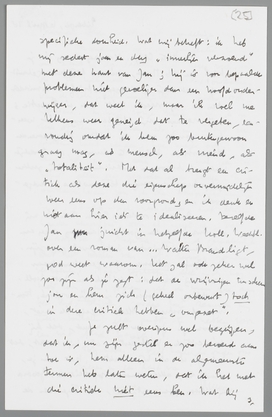 (25)
specifieke domheid. Wat mij betreft: ik heb
mij sedert jaar en dag "innerlijk verzoend"
met deze kant van Jan; hij is voor bepaalde
problemen niet gevoeliger dan een hoofdonder-
wijzer, dat weet ik, maar ik voel me
telkens weer geneigd dat te vergeten, een-
voudig omdat ik hem zoo buitengewoon
graag mag, als mensch, als vriend, als
"totaliteit". Met dat al brengt een cri-
tiek als deze die eigenschap onvermijdelijk
weer eens op den voorgrond, en ik denk er
niet aan hier iets te idealiseeren. Dezelfde
Jan juicht in hetzelfde
over een roman van... Walter Brandligt,
god weet waarom. Het zal ook zeker wel
zoo zijn als je zegt: dat de wrijvingen tusschen
jou en hem zich (geheel onbewust) toch
in deze critiek hebben
Je zult overigens wel begrijpen,
dat ik, nu zijn zoo
is, hem alleen in de algemeenste
termen heb laten weten, dat ik het met
die critiek niet eens ben. Wat hij